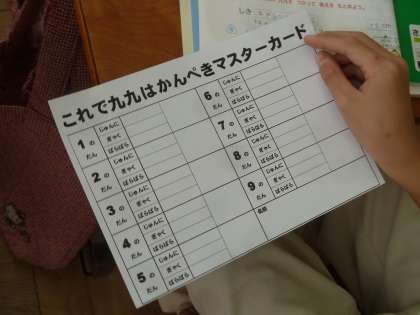 これで九九はかんぺきマスターカード
1のだん
じゅんに
ぎゃく
ばらばら
2のだん
じゅんに
ぎゃく
ばらばら
3のだん
じゅんに
ぎゃく
ばらばら
4のだん
じゅんに
ぎゃく
ばらばら
5のだん
じゅんに
ぎゃく
ばらばら
6のだん
じゅんに
ぎゃく
ばらばら
7のだん
じゅんに
ぎゃく
ばらばら
8のだん
じゅんに
ぎゃく
ばらばら
9のだん
じゅんに
ぎゃく
ばらばら
名前
しき